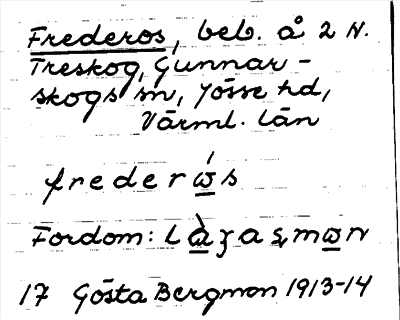 Frederos, beb. å 2 N.
Treskog, Gunnar-
skogs sn, Jösse hd,
Värml. län
frederώs
Fordom: Lὰʒasmωn
17 Gösta Bergman 1913-14